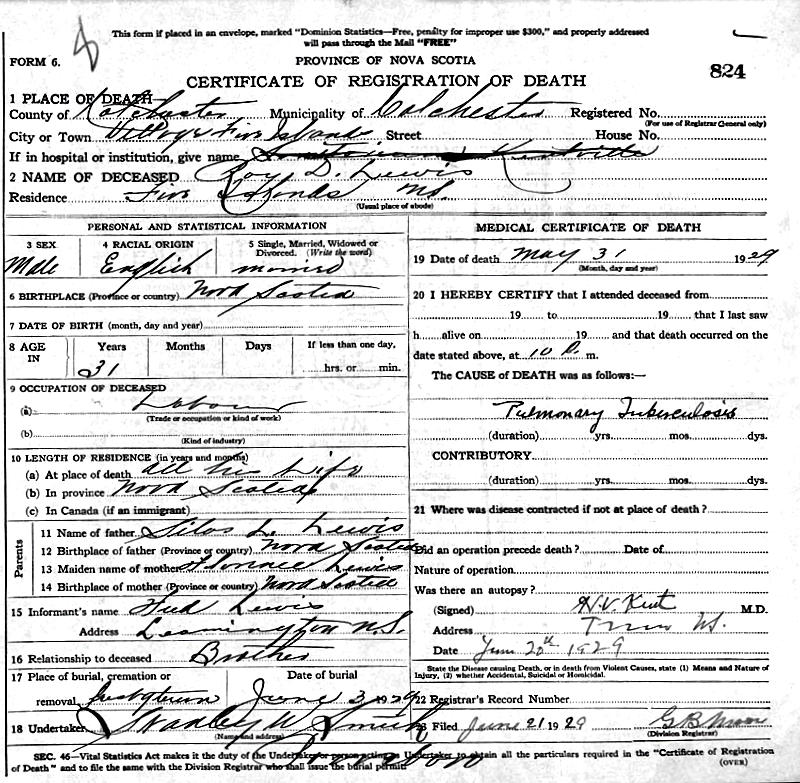 This form if placed in an envelope, marked "Dominion Statistics—Free, penalty for improper use $300," and properly addressed
will pass through the Mail "FREE"
FORM 6. PROVINCE OF NOVA SCOTIA
CERTIFICATE OF REGISTRATION OF DEATH 824
1 PLACE OF DEATH
County of Colchester Municipality of Colchester Registered No.
(For use of Registrar General only)
City or Town Village Five Islands Street House No.
If in hospital or institution, give name Kentville
2 NAME OF DECEASED Roy D. Lewis
Residence Five Islands NS.
(Usual place of abode)
PERSONAL AND STATISTICAL INFORMATION
3 SEX 4 RACIAL ORIGIN 5 Single, Married, Widowed or
Divorced. (Write the word)
Male English
6 BIRTHPLACE (Province or country) Nova Scotia
7 DATE OF BIRTH (month, day and year)
8 AGE IN Years Months Days If less than one day,
31 hrs. or min.
9 OCCUPATION OF DECEASED
(a) Labour
(Trade or occupation or kind of work)
(b)
(Kind of industry)
10 LENGTH OF RESIDENCE (in years and months)
(a) At place of death all his Life
(b) In province Nova Scotia
(c) In Canada (if an immigrant)
Parents
11 Name of father Silas L. Lewis
12 Birthplace of father (Province or country) Nova Scotia
13 Maiden name of mother Lewis
14 Birthplace of mother (Province or country) Nova Scotia
15 Informant's name Lewis
Address Leamington N.S.
16 Relationship to deceased Brother
17 Place of burial, cremation or Date of burial
removal June 3 1929
18 Undertaker Stanley W. Smith
(Name and address)
MEDICAL CERTIFICATE OF DEATH
19 Date of death May 31 1929
(Month, day and year)
20 I HEREBY CERTIFY that I attended deceased from
19 to 19 that I last saw
h alive on 19 and that death occurred on the
date stated above, at 10 P. m.
The CAUSE of DEATH was as follows:—
Pulmonary Tuberculosis
(duration) yrs. mos. dys.
CONTRIBUTORY
(duration) yrs. mos. dys.
21 Where was disease contracted if not at place of death?
Did an operation precede death? Date of
Nature of operation
Was there an autopsy?
(Signed) H.V. Kent M.D.
Address Truro NS.
Date June 20th 1929
State the Disease causing Death, or in death from Violent Causes, state (1) Means and Nature of
Injury, (2) whether Accidental, Suicidal or Homicidal.
22 Registrar's Record Number
23 Filed June 21 1929
(Division Registrar)
SEC. 46—Vital Statistics Act makes it the duty of the Undertaker or person acting as Undertaker to obtain all the particulars required in the "Certificate of Registration
of Death" and to file the same with the Division Registrar who shall issue the burial permit. (OVER)